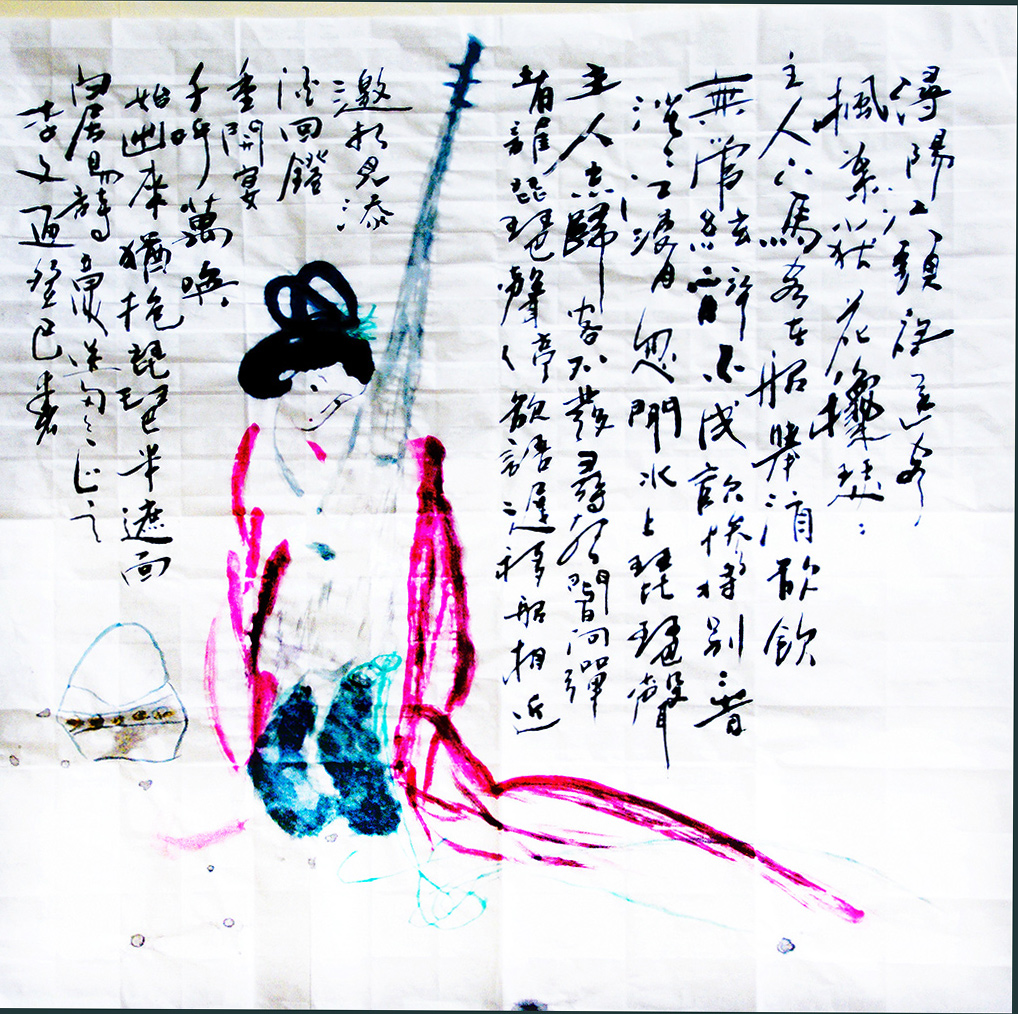 潯陽江頭夜送客
楓葉荻花瑟
主人下馬客在船舉酒欲飲
無管絃不成歡慘將別
茫江浸月忽聞水上琵琶聲
主人忘歸客不發尋聲闇問彈
者誰琵琶聲停欲語遲移船相近
邀相見添
酒回鐙
重開宴
千呼萬喚
始出來猶抱琵琶半遮面
白居易詩意選句
李文癸巳書